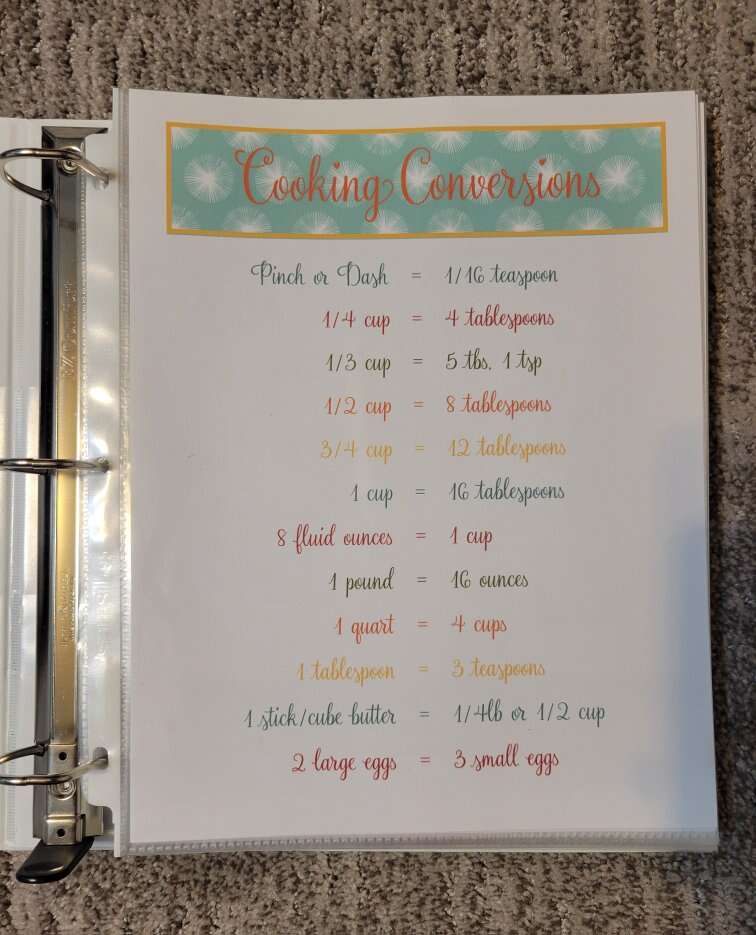 Cooking Conversions
Pinch or Dash = 1/16 teaspoon
1/4 cup = 4 tablespoons
1/3 cup = 5 tbs, 1 tsp
1/2 cup = 8 tablespoons
3/4 cup = 12 tablespoons
1 cup = 16 tablespoons
8 fluid ounces = 1 cup
1 pound = 16 ounces
1 quart = 4 cups
1 tablespoon = 3 teaspoons
1 stick/cube butter = 1/4lb or 1/2 cup
2 large eggs = 3 small eggs